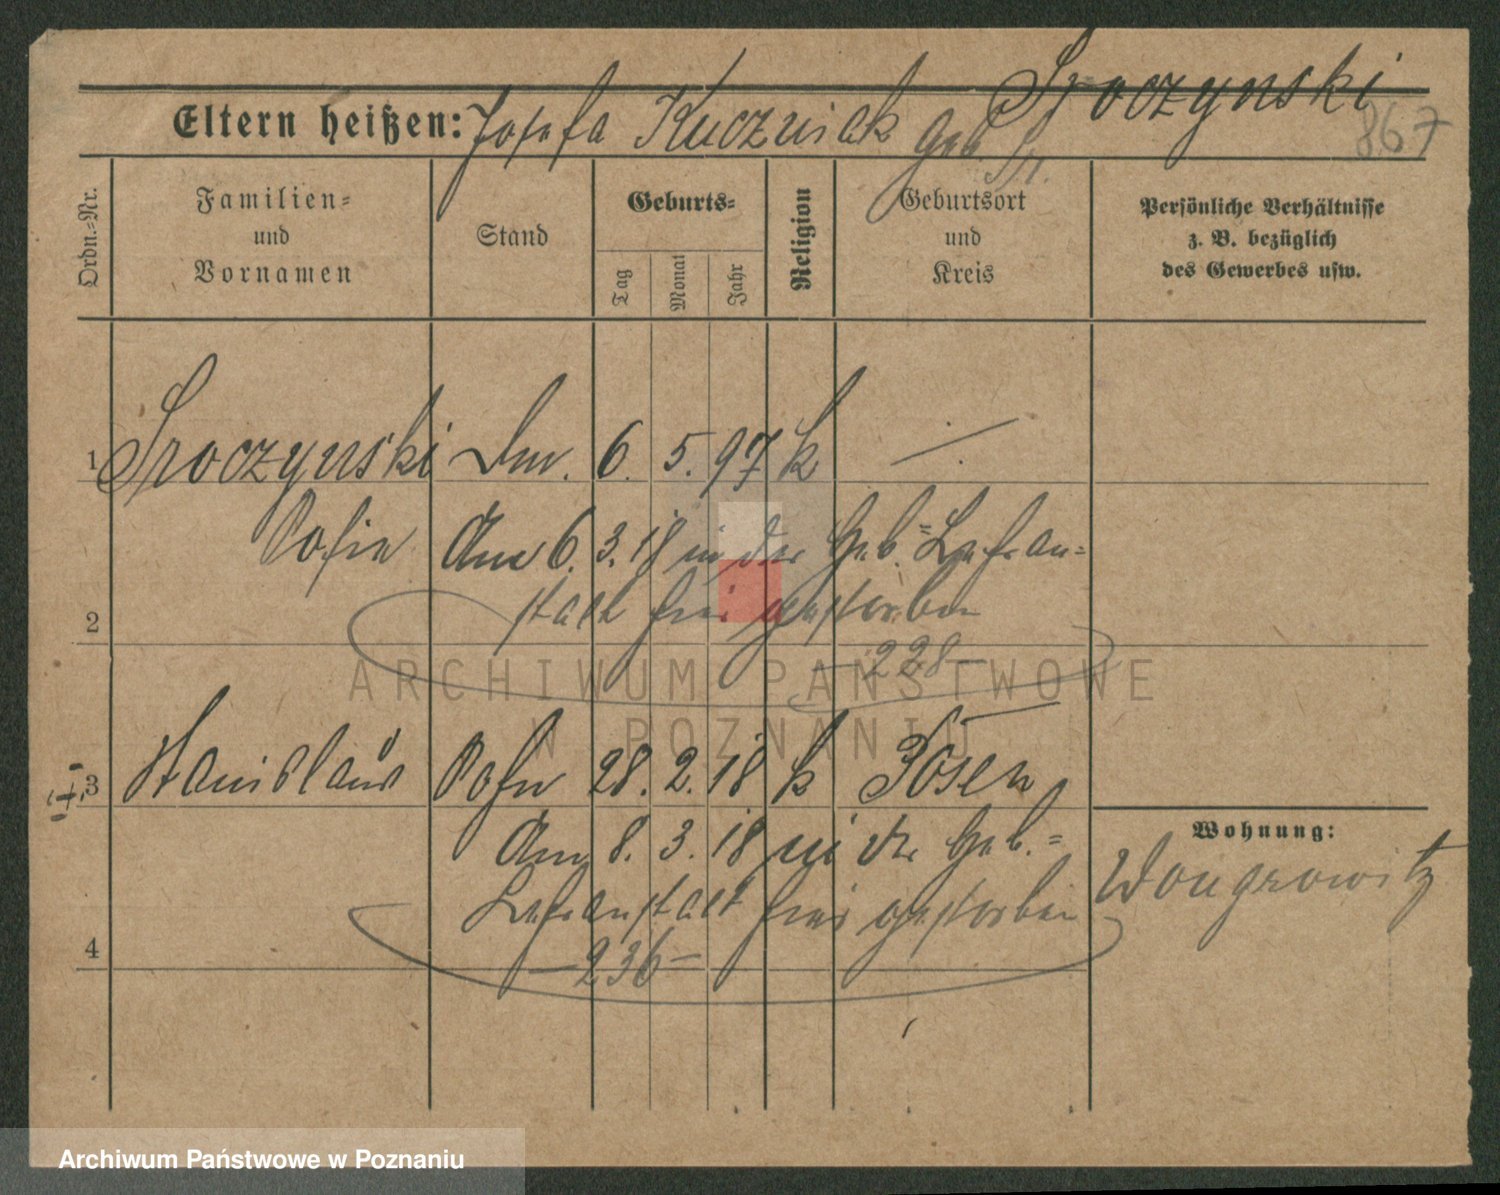 Sroczynski
Eltern heißen: Josefa Kuczniak geb Sr.
867
Ordn.-Nr.
Familien- und Vornamen
Stand
Geburts-
Tag
Monat
Jahr
Religion
Geburtsort und Kreis
Persönliche Verhältnisse z. B. bezüglich des Gewerbes usw.
1 Sroczynski 6. 5. 97 k —
Sofie Am 6. 3. 18 in der Geb.-Lehran-
2 stalt hier gestorben
-228-
3 Stanislaus Sohn 28. 2. 18 k Posen
Am 8. 3. 18 in der Geb.-
Lehranstalt hier gestorben
4 -236-
Wohnung:
Wongrowitz
ARCHIWUM PAŃSTWOWE
W POZNANIU
Archiwum Państwowe w Poznaniu